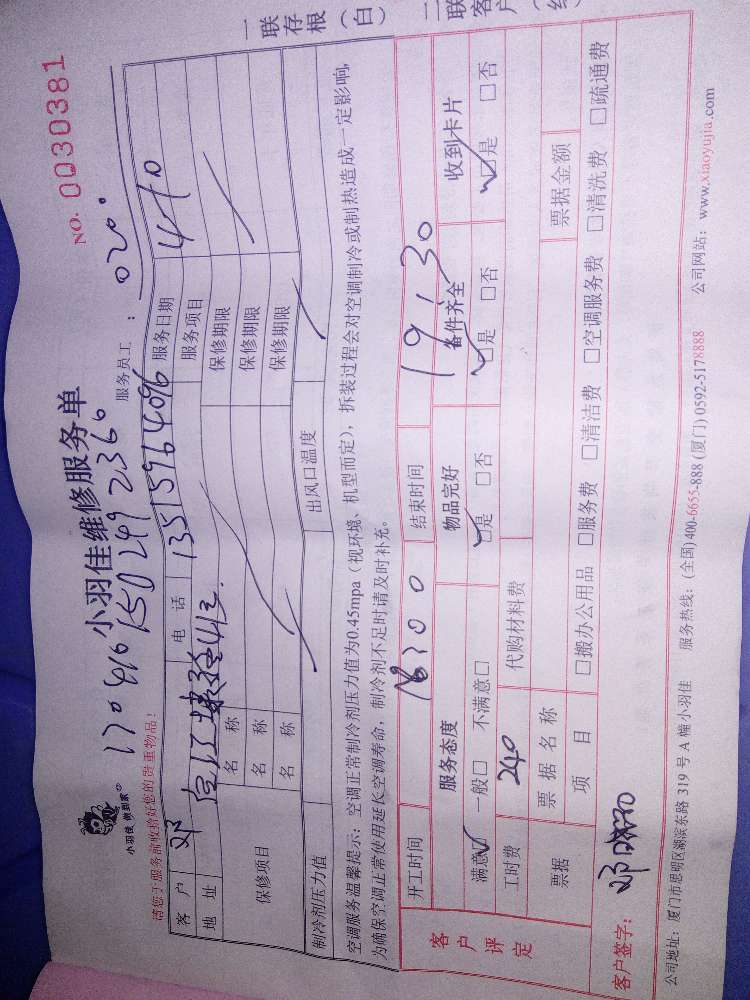 一联存根(白)
二联客户(红)
小羽佳 做到家
小羽佳维修服务单
NO. 0030381
170416150249236
请您于服务前收拾好您的贵重物品!
服务员工:020
客户 邓 电话 13515964096 服务日期 4-10
地址 服务项目
保修项目 名称 保修期限
名称 保修期限
名称 保修期限
制冷剂压力值 出风口温度
空调服务温馨提示:空调正常制冷剂压力值为0.45mpa(视环境、机型而定),拆装过程会对空调制冷或制热造成一定影响,
为确保空调正常使用延长空调寿命,制冷剂不足时请及时补充。
开工时间 16:00 结束时间 19:30
客户评定 服务态度 物品完好 备件齐全 收到卡片
满意☑ 一般□ 不满意□ ☑是 □否 ☑是 □否 ☑是 □否
工时费 240 代购材料费
票据 票据名称 票据金额
项目 □搬办公用品 □服务费 □清洁费 □空调服务费 □清洗费 □疏通费
客户签字:邓
公司地址:厦门市思明区湖滨东路 319 号 A 幢小羽佳 服务热线:(全国)400-6655-888 (厦门) 0592-5178888 公司网站:www.xiaoyujia.com